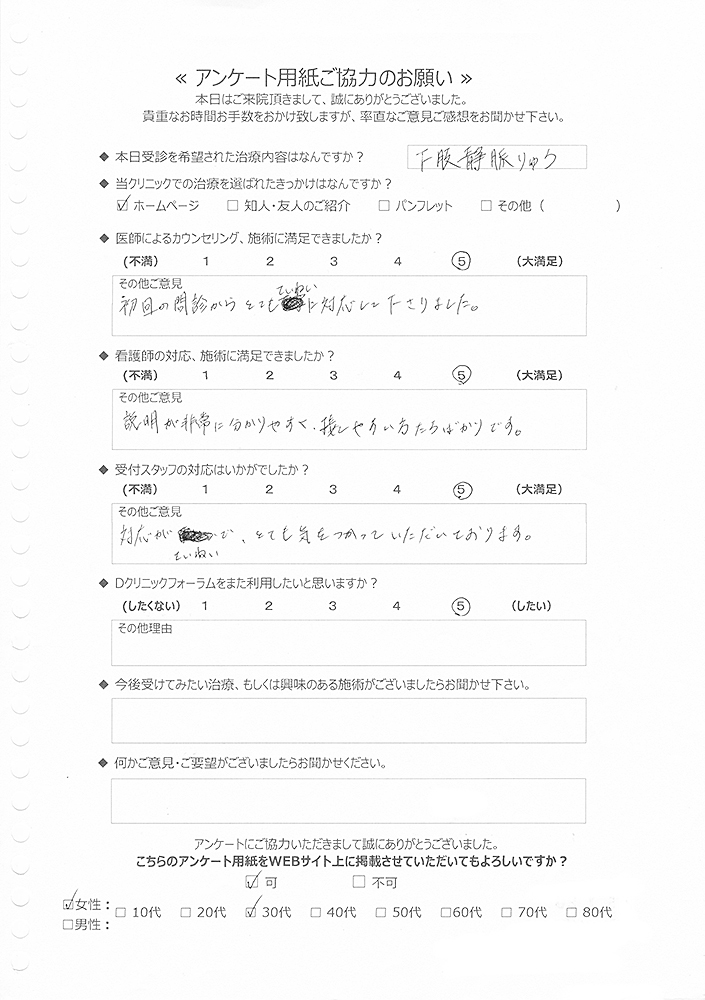 ≪ アンケート用紙ご協力のお願い ≫
本日はご来院頂きまして、誠にありがとうございました。
貴重なお時間お手数をおかけ致しますが、率直なご意見ご感想をお聞かせ下さい。
◆ 本日受診を希望された治療内容はなんですか？ 下肢静脈りゅう
◆ 当クリニックでの治療を選ばれたきっかけはなんですか？
☑ ホームページ □ 知人・友人のご紹介 □ パンフレット □ その他（ ）
◆ 医師によるカウンセリング、施術に満足できましたか？
(不満) 1 2 3 4 5 (大満足)
その他ご意見
初回の問診からとてもていねいに対応して下さりました。
◆ 看護師の対応、施術に満足できましたか？
(不満) 1 2 3 4 5 (大満足)
その他ご意見
説明が非常に分かりやすく、接しやすい方たちばかりです。
◆ 受付スタッフの対応はいかがでしたか？
(不満) 1 2 3 4 5 (大満足)
その他ご意見
対応がていねいで、とても気をつかっていただいております。
◆ Dクリニックフォーラムをまた利用したいと思いますか？
(したくない) 1 2 3 4 5 (したい)
その他理由
◆ 今後受けてみたい治療、もしくは興味のある施術がございましたらお聞かせ下さい。
◆ 何かご意見・ご要望がございましたらお聞かせください。
アンケートにご協力いただきまして誠にありがとうございました。
こちらのアンケート用紙をWEBサイト上に掲載させていただいてもよろしいですか？
☑ 可 □ 不可
☑女性：
□男性：
□ 10代 □ 20代 ☑ 30代 □ 40代 □ 50代 □60代 □ 70代 □ 80代